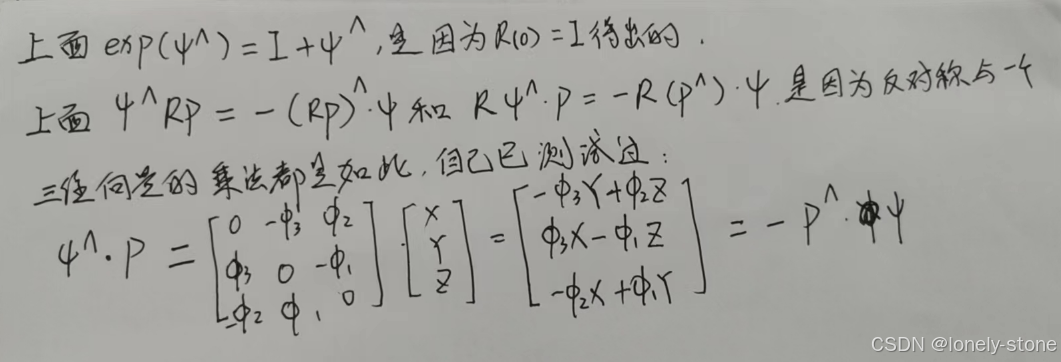 上面 exp(ψ^) = I + ψ^, 是因为R(0) = I 得出的.
上面 ψ^RP = -(RP)^·ψ 和 Rψ^·P = -R(P^)·ψ. 是因为反对称与一个
三维向量的乘法都是如此, 自己已测试过:
ψ^·P = [0 -φ3 φ2; φ3 0 -φ1; -φ2 φ1 0]·[X; Y; Z] = [-φ3Y+φ2Z; φ3X-φ1Z; -φ2X+φ1Y] = -P^·ψ
CSDN @lonely-stone